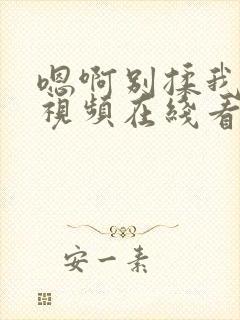 嗯啊别揉我
視頻在綫看
安一素